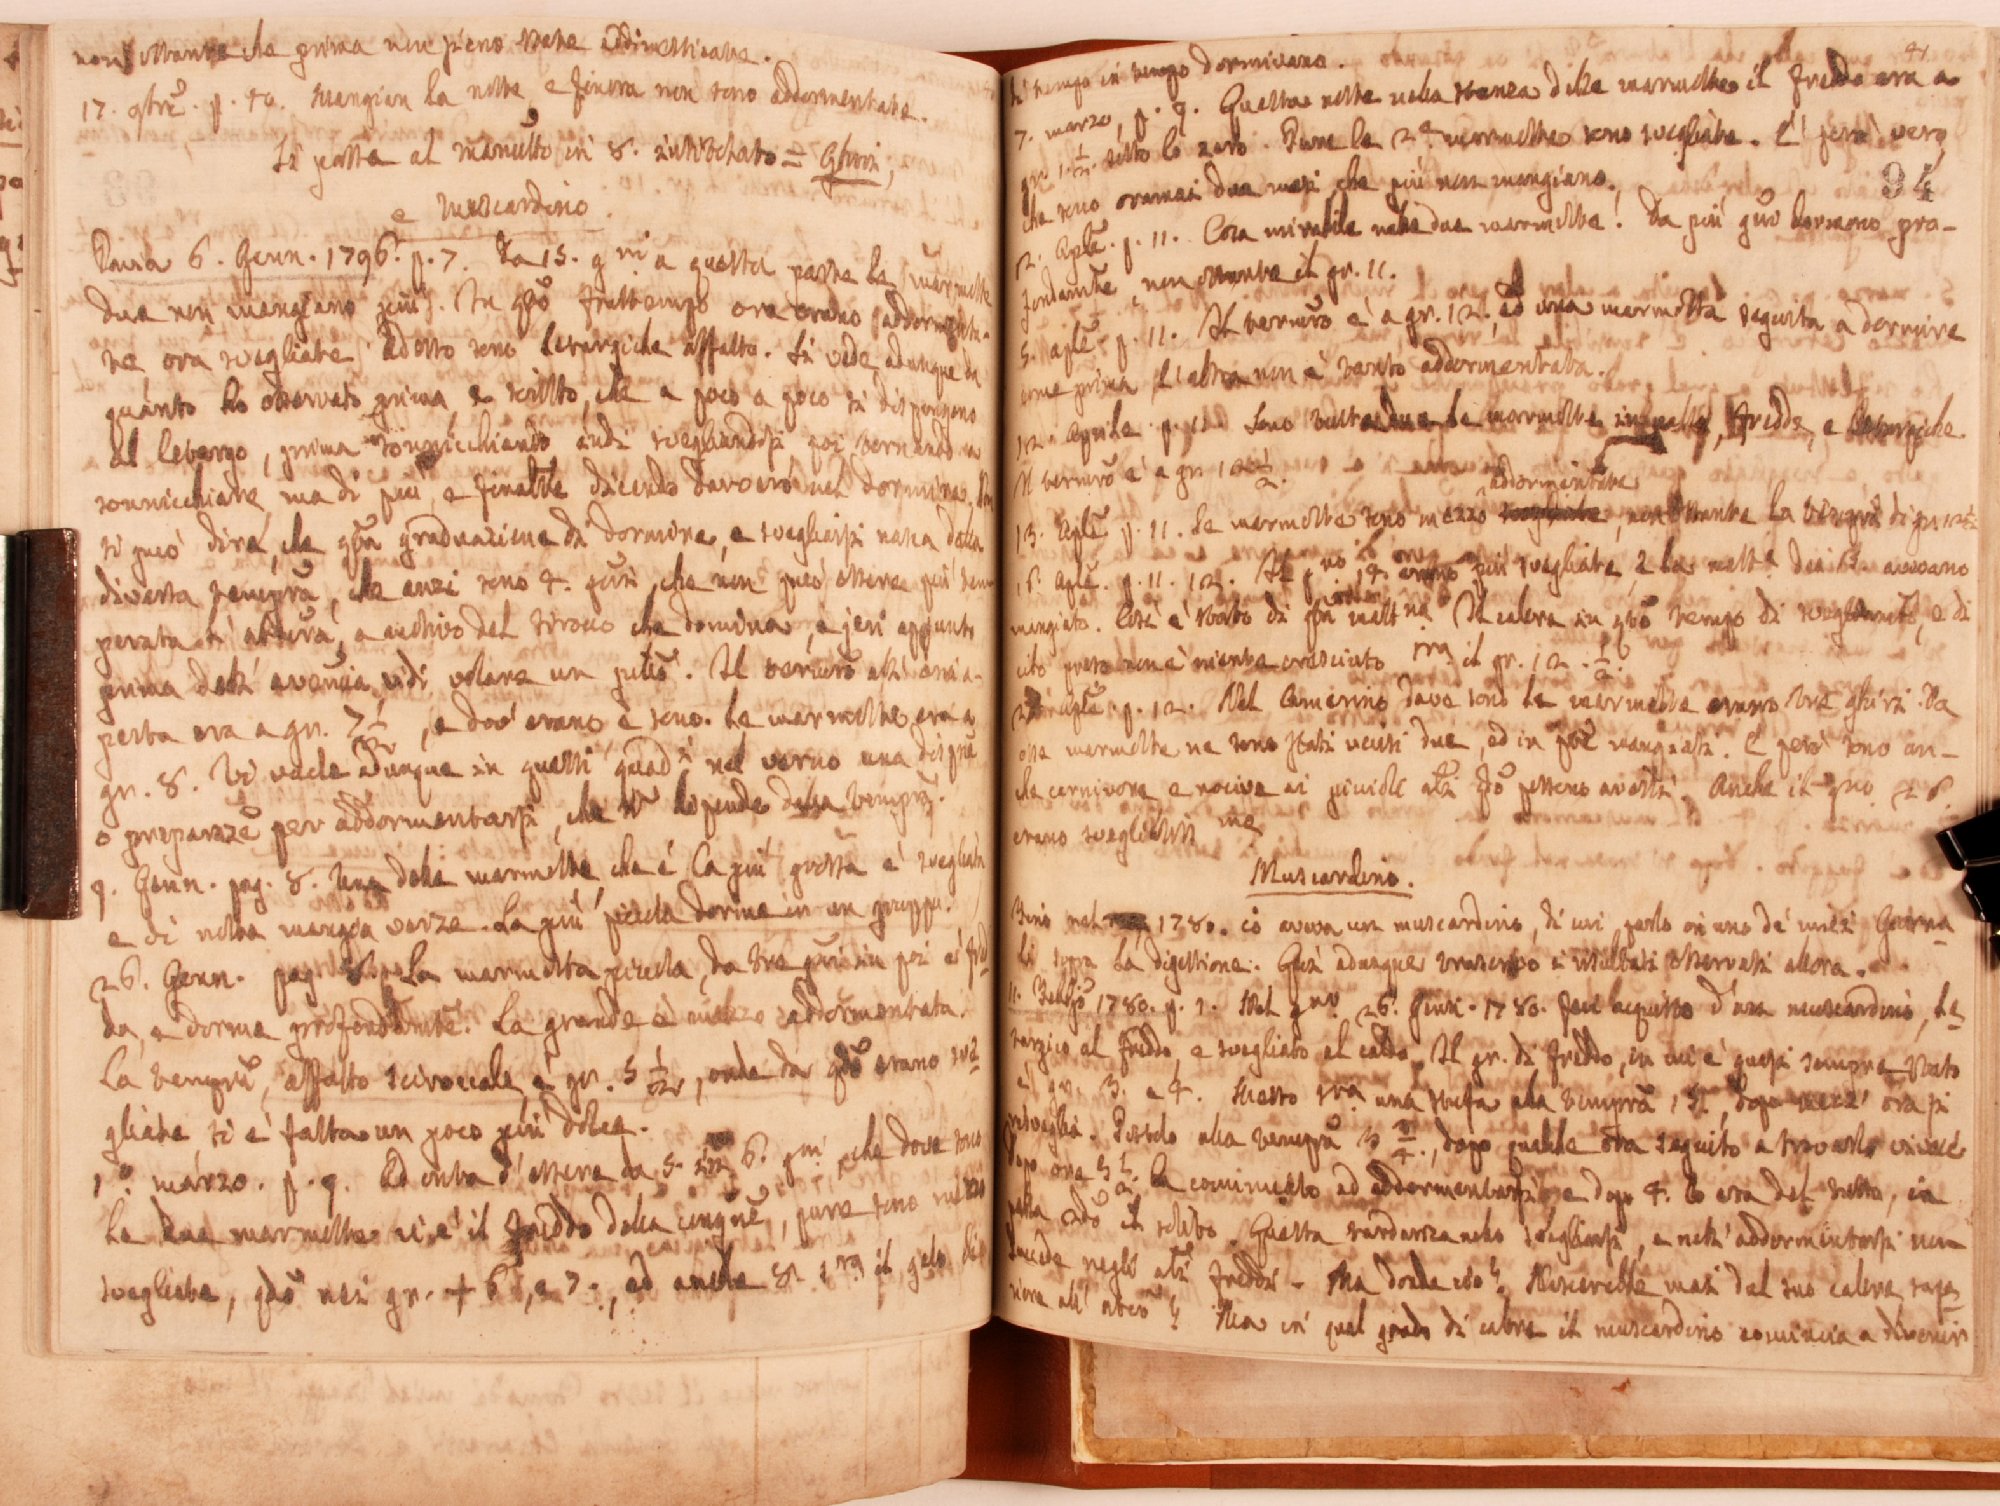 non ostante che prima non sieno state addimesticate.
17. 9bre. p. 40. Mangian la notte, e finora non sono addormentate.
Si passa al manuscritto in 8. intitolato = Ghiri,
e Muscardino.
Pavia 6. Genn. 1796. p. 7. Da 15. gni a questa parte le marmotte
due non mangiano più. In questo frattempo ora erano addormenta-
te, ora svegliate. Adesso sono letargiche affatto. Si vede adunque da
quanto ho osservato prima, e scritto, che a poco a poco si dispongono
al letargo, prima sonnicchiando indi svegliandosi, poi tornando a
sonnicchiare, ma di più, e finalte dicendo davvero nel dormire.
si può dire, che qta graduazione di dormire, e svegliarsi nasca dalla
diversa tempra, che anzi sono 4. gni, che non può essere più tem-
perata l'atmosfera, a motivo del scirocco che domina, e jeri appunto
prima dell'
volare un
. Il termro all'aria a-
perta era a gr. 7 1/2, e dov'erano e sono le marmotte era a
gr. 8. Si vede adunque in questi quadi nel verno una disposne
o preparazne per addormentarsi, che non dipende dalla tempra.
9. Genn. pag. 8. Una delle marmotte, che è la più grossa è svegliata
e di notte mangia verze. La più piccola dorme in un gruppo.
26. Genn. pag. 8. La marmotta piccola, da tre giorni in poi è fred-
da, e dorme profondamte. La grande è mezzo addormentata.
La tempra, affatto sciroccale, è gr. 5 1/2, onde da qdo erano sve-
gliate si è fatta un poco più dolce.
1o. marzo. p. 9. Ad onta d'essere da 5. in 6. gni, che dove sono
le due marmotte vi è il freddo della congne, pure sono mezzo
svegliate, qdo nei gr. + 6, e 7., ed anche 8. sopra il gelo di
di tempo in tempo dormivano.
41
7. marzo, p. 9. Questa notte nella stanza delle marmotte il freddo era a
gr. 1. 1/2. sotto lo zero. Pure le 2e marmotte sono svegliate. È però vero,
94
che sono oramai due mesi che più non mangiano.
2. Aple. p. 11. Cosa mirabile nelle due marmotte! Da più gni dormono pro-
fondamte, non ostante il gr. 11.
5. aple p. 11. Il termro è a gr. 12., ed una marmotta seguita a dormire
come prima, l'altra non è tanto addormentata.
12. Aprile p. 11. Sono tuttadue le marmotte in palla, fredde, e letargiche.
Il termro è a gr. 10 1/2.
addormentate
13. Aple p. 11. Le marmotte sono mezzo svegliate, non ostante la tempra di gr. 12 1/2
16. Aple. p. 11. 12. Il
erano più svegliate, e la notte dei 15 avevano
mangiato. Così è stato di
Il calore in qto tempo di svegliamto, e di
cibo preso non è niente cresciuto sopra il gr. 12. 1/2.
26. aple. p. 12. Nel camerino dove sono le marmotte erano tre ghiri. Da
esse marmotte ne sono stati uccisi due, ed in pte mangiati. E però sono an-
che carnivore e nocive ai piccioli ali qdo possono averli. Anche il gno 26.
erano svegliatissme
Muscardino.
Sino nel 1780. io aveva un muscardino, di cui parlo in uno de' miei Giorna-
li sopra la digestione. Qui adunque trascrivo i risultati osservati allora.
11. Febbjo 1780. p. 1. Nel gno. 26. Genn. 1780. feci acquisto d'un muscardino, le-
targico al freddo, e svegliato al caldo. Il gr. di freddo, in cui è quasi sempre stato
è gr. 3. e 4. Messo sopra una stufa alla tempra 15., dopo mezz'ora si
risveglia. Postolo alla tempra 3 3/4., dopo qualche ora seguitò a trovarlo vivace
Dopo ore 3 1/2. ha cominciato ad addormentarsi, e dopo 4. lo era del tutto, in
palla 2do il solito. Questa tardanza nello svegliarsi, e nell'addormentarsi non
succede negli ali freddi. Ma donde ciò? Nascerebbe mai dal suo calore supe-
riore all' altro? Ma in qual grado di calore il muscardino comincia a divenir